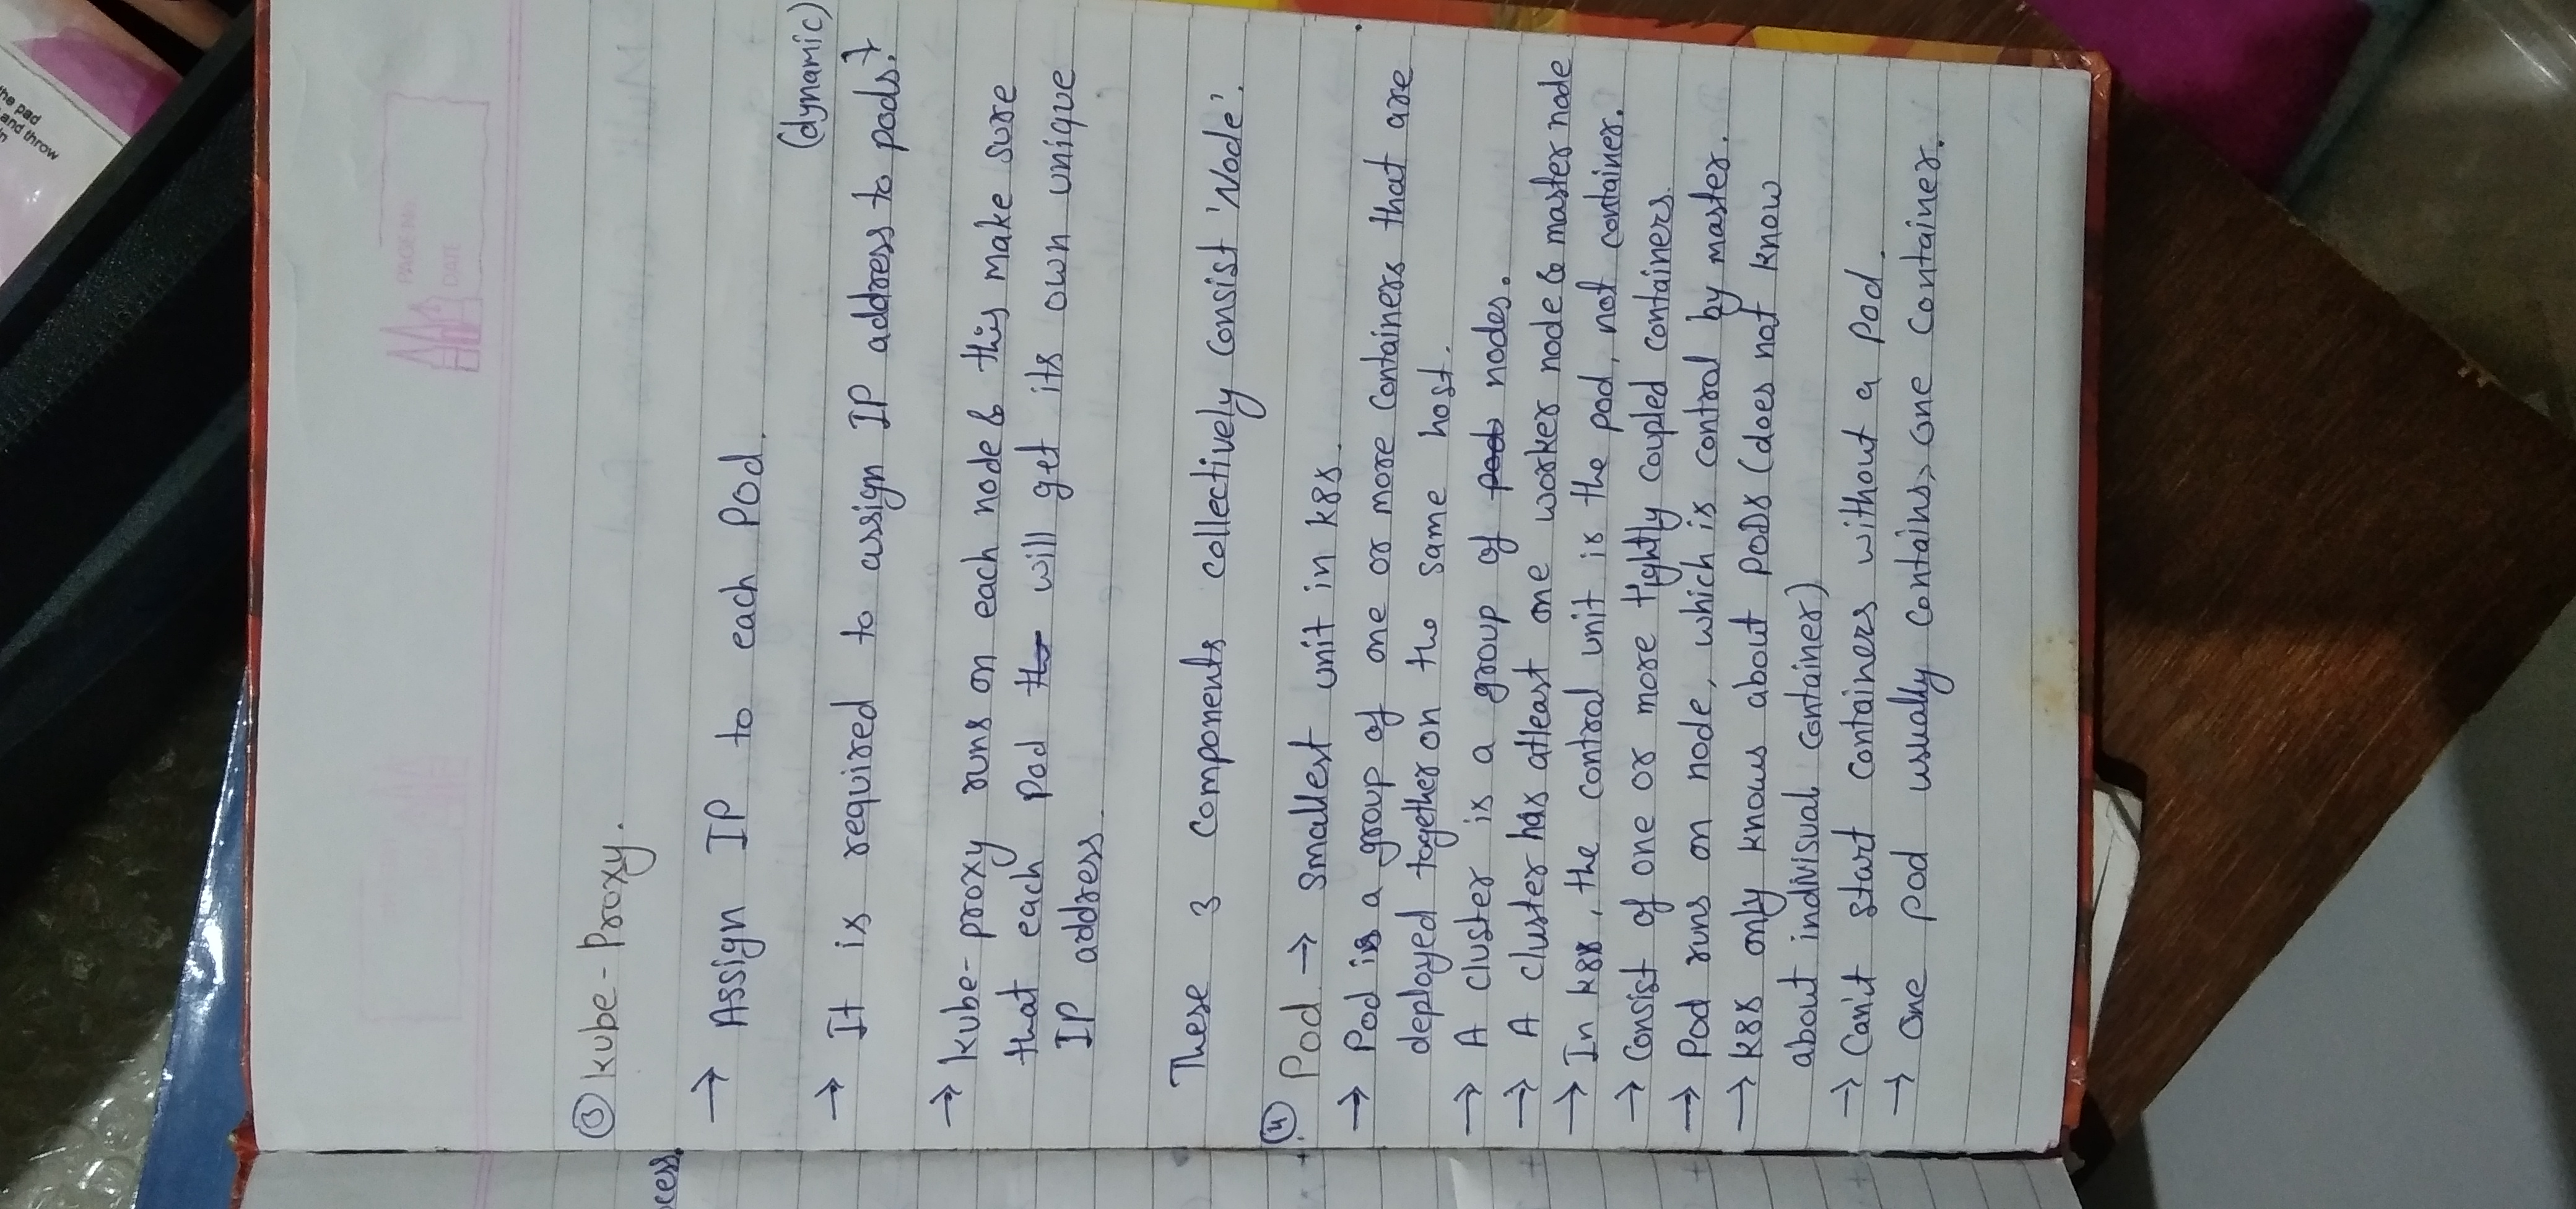 the pad
and throw
in
PAGE No.
DATE
③ Kube-Proxy.
cess.
→ Assign IP to each Pod.
(dynamic)
→ It is required to assign IP address to pods.
→ Kube-proxy runs on each node & this make sure
that each pod will get its own unique
IP address.
These 3 components collectively consist 'Node'.
④ Pod → smallest unit in k8s.
→ Pod is a group of one or more containers that are
deployed together on the same host.
→ A cluster is a group of pods nodes.
→ A cluster has atleast one worker node & master node
→ In k8s, the control unit is the pod, not container.
→ Consist of one or more tightly coupled containers.
→ Pod runs on node, which is control by master.
→ k8s only knows about PODs (does not know
about indivisual container)
→ Can't start containers without a pod.
→ One pod usually contains, one container.